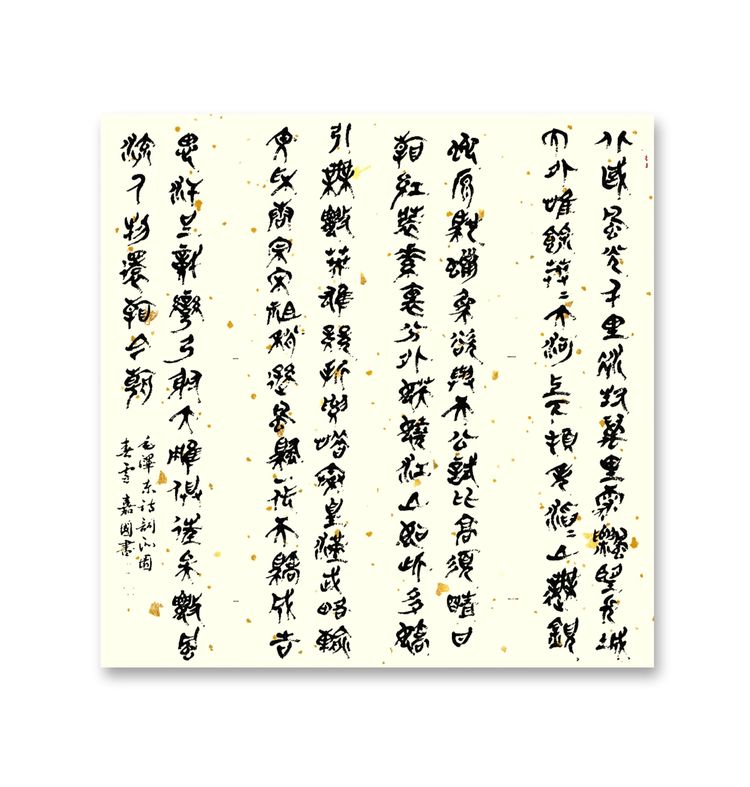 北國風光千里冰封萬里雪飄望長城
內外惟餘莽〻大河上下頓失滔〻山舞銀
蛇原馳蠟象欲與天公試比高須晴日
看紅裝素裹分外妖嬈江山如此多嬌
引無數英雄競折腰惜秦皇漢武略輸
文采唐宗宋祖稍遜風騷一代天驕成吉
思汗只識彎弓射大雕俱往矣數風
流人物還看今朝
毛澤东诗詞沁园
春雪 嘉國書